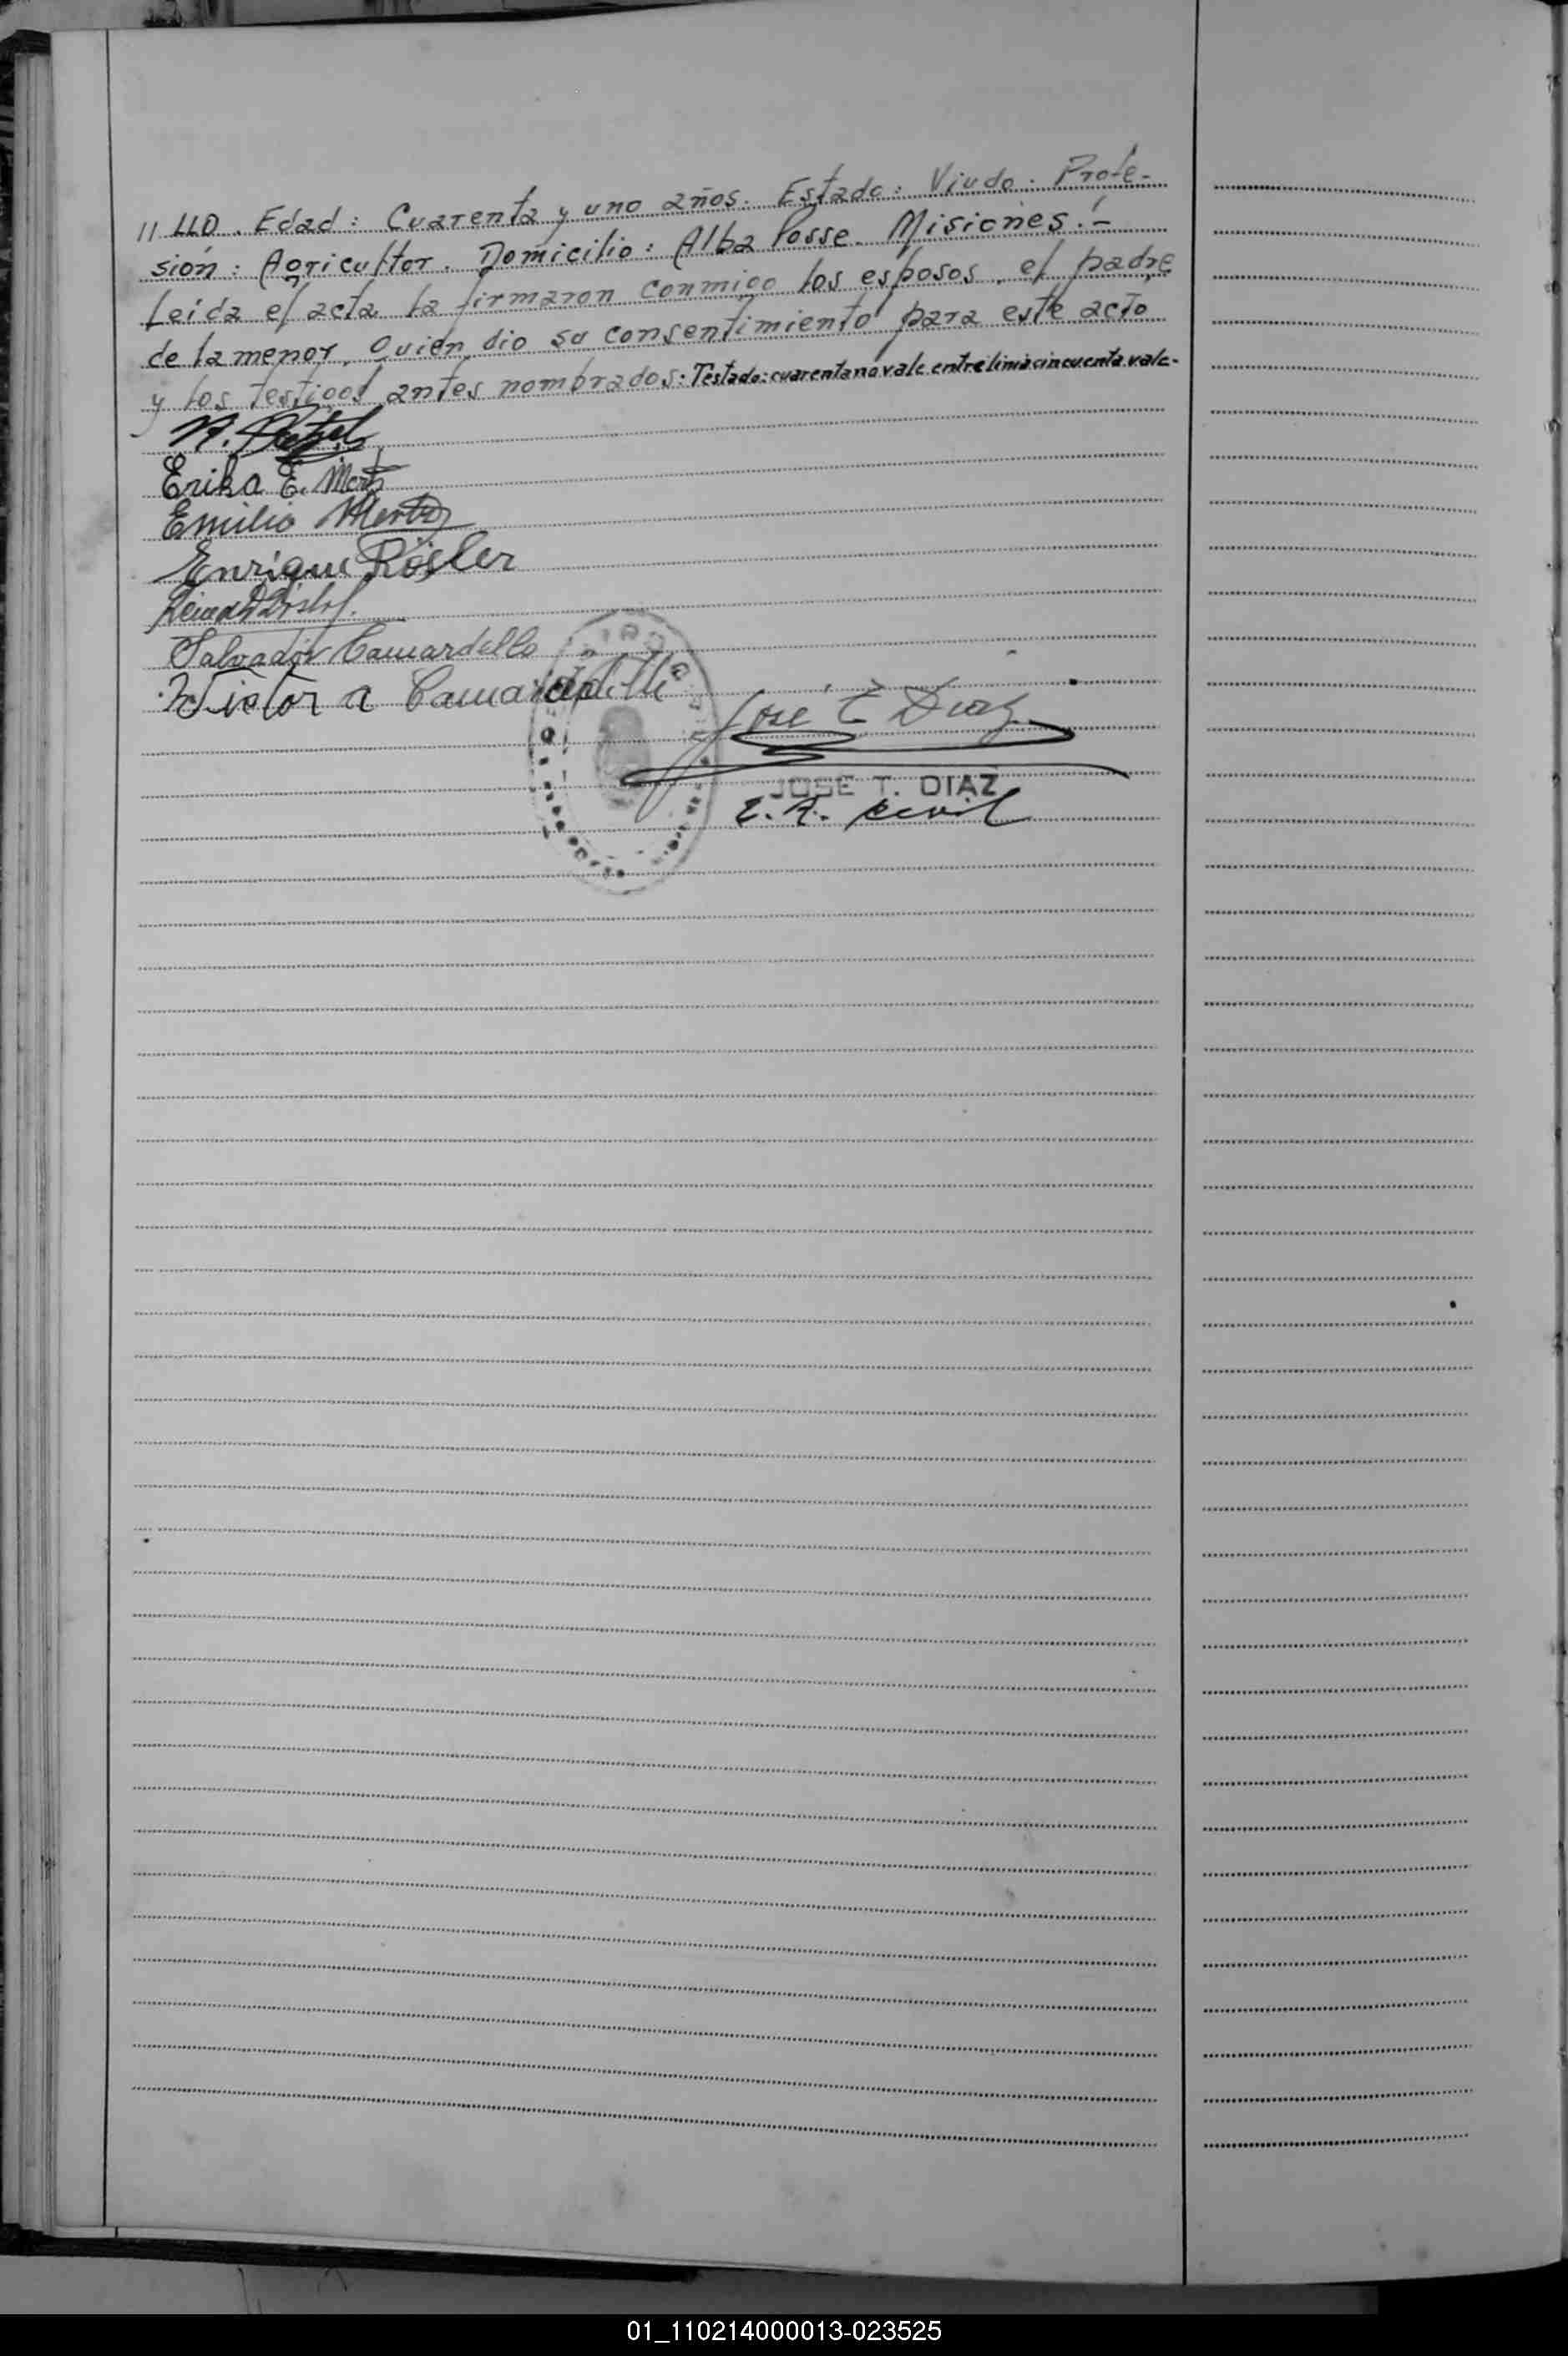 // LLO. Edad: Cuarenta y uno años. Estado: Viudo. Profe-
sión: Agricultor. Domicilio: Alba Posse. Misiones.-
Leída el acta la firmaron conmigo los esposos, el padre
de la menor, quien dio su consentimiento para este acto
y los testigos antes nombrados: Testado: cuarenta no vale entre linia cincuenta vale-
Erika E. Mertz
Emilio Mertz
Enrique Rösler
Salvador Camardello
Victor a Camardelli
José T Diaz
JOSE T. DIAZ
E. R. Civil
01_110214000013-023525